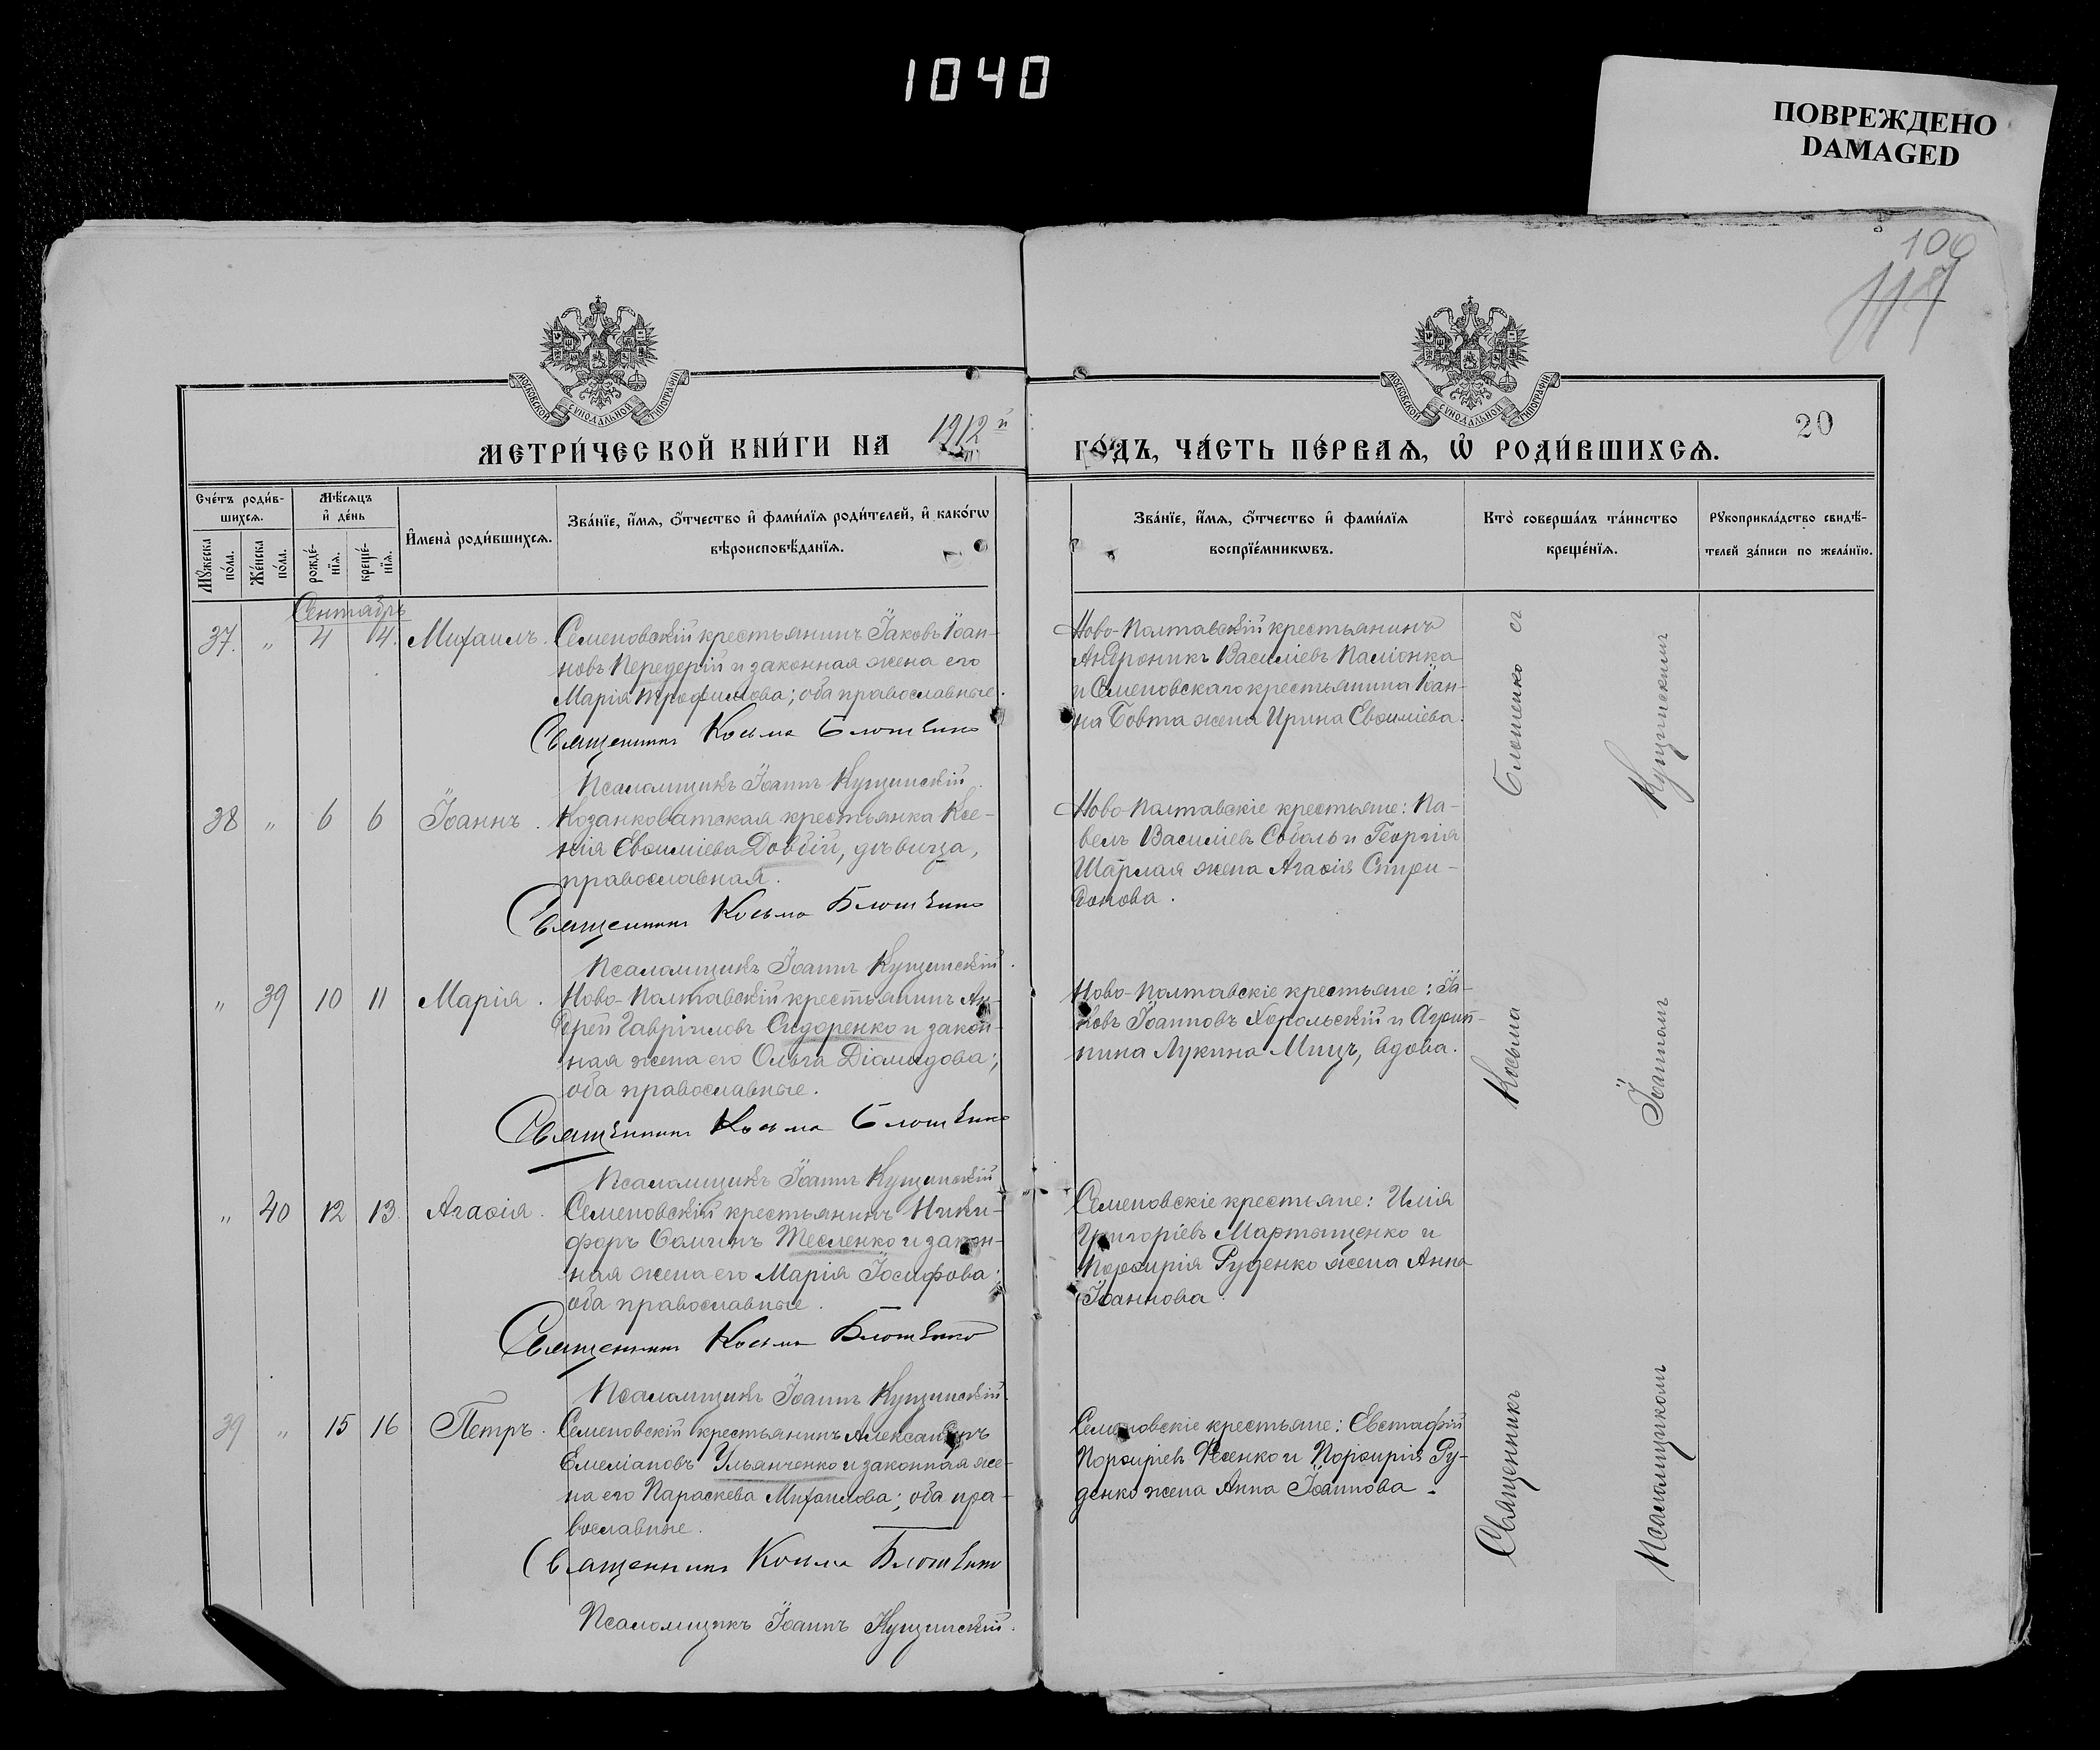 1040
ПОВРЕЖДЕНО
DAMAGED
106
117
МОСКОВСКОЙ СѴНОДАЛЬНОЙ ТИПОГРАФІИ
МОСКОВСКОЙ СѴНОДАЛЬНОЙ ТИПОГРАФІИ
20
МЕТРИ́ЧЕСКОЙ КНИ́ГИ НА 1912й ГО́ДЪ, ЧА́СТЬ ПЕ́РВАѦ, Ѡ҆ РОДИ́ВШИХСѦ.
Сче́тъ роди́в-
шихсѧ.
Мꙋ́жеска по́ла.
Же́нска по́ла.
Мѣ́сѧцъ
и҆ де́нь
рожде́-
нїѧ.
креще́-
нїѧ.
И҆мена̀ роди́вшихсѧ.
Зва́нїе, и҆́мѧ, ѻ҆́тчество и҆ фами́лїѧ роди́телей, и҆ како́гѡ
вѣроисповѣ́данїѧ.
Зва́нїе, и҆́мѧ, ѻ҆́тчество и҆ фами́лїѧ
воспрїе́мникѡвъ.
Кто̀ соверша́лъ та́инство
креще́нїѧ.
Рꙋкоприкла́дство свидѣ́-
телей за́писи по жела́нїю.
Сентябрь
37. " 4 4. Михаилъ. Семеновскій крестьянинъ Іаковъ Іоан-
новъ Передерій и законная жена его
Марія Трофимова; оба православные.
Священникъ Косьма Блошенко
Псаломщикъ Іоаннъ Кущинскій.
Ново-Полтавскій крестьянинъ
Андроникъ Василіевъ Паліонка
и Семеновскаго крестьянина Іоан-
на Бовта жена Ирина Евѳиміева.
38 " 6 6 Іоаннъ. Козанковатская крестьянка Ксе-
нія Евѳиміева Довбій, дѣвица,
православная.
Священникъ Косьма Блошенко
Псаломщикъ Іоаннъ Кущинскій.
Ново-Полтавскіе крестьяне: Па-
велъ Василіевъ Соболь и Георгія
Шарлая жена Агаѳія Спири-
донова.
" 39 10 11 Марія. Ново-Полтавскій крестьянинъ Ан-
дрей Гавріиловъ Сидоренко и закон-
ная жена его Ольга Діомидова;
оба православные.
Священникъ Косьма Блошенко
Псаломщикъ Іоаннъ Кущинскій
Ново-Полтавскіе крестьяне: Іа-
ковъ Іоанновъ Хорольскій и Агрип-
пина Лукина Мицъ, вдова.
" 40 12 13. Агаѳія. Семеновскій крестьянинъ Ники-
форъ Ѳоминъ Тесленко и закон-
ная жена его Марія Іосифова;
оба православные.
Священникъ Косьма Блошенко
Псаломщикъ Іоаннъ Кущинскій.
Семеновскіе крестьяне: Илія
Григоріевъ Мартыщенко и
Порфирія Руденко жена Анна
Іоаннова.
39 " 15 16 Петръ. Семеновскій крестьянинъ Александръ
Емеліановъ Ульянченко и законная же-
на его Параскева Михаилова; оба пра-
вославные.
Священникъ Косьма Блошенко
Псаломщикъ Іоаннъ Кущинскій.
Семеновскіе крестьяне: Евстафій
Порѳиріевъ Фесенко и Порѳирія Ру-
денко жена Анна Іоаннова.
Священникъ Косьма Блошенко съ
Псаломщикомъ Іоанномъ Кущинскимъ